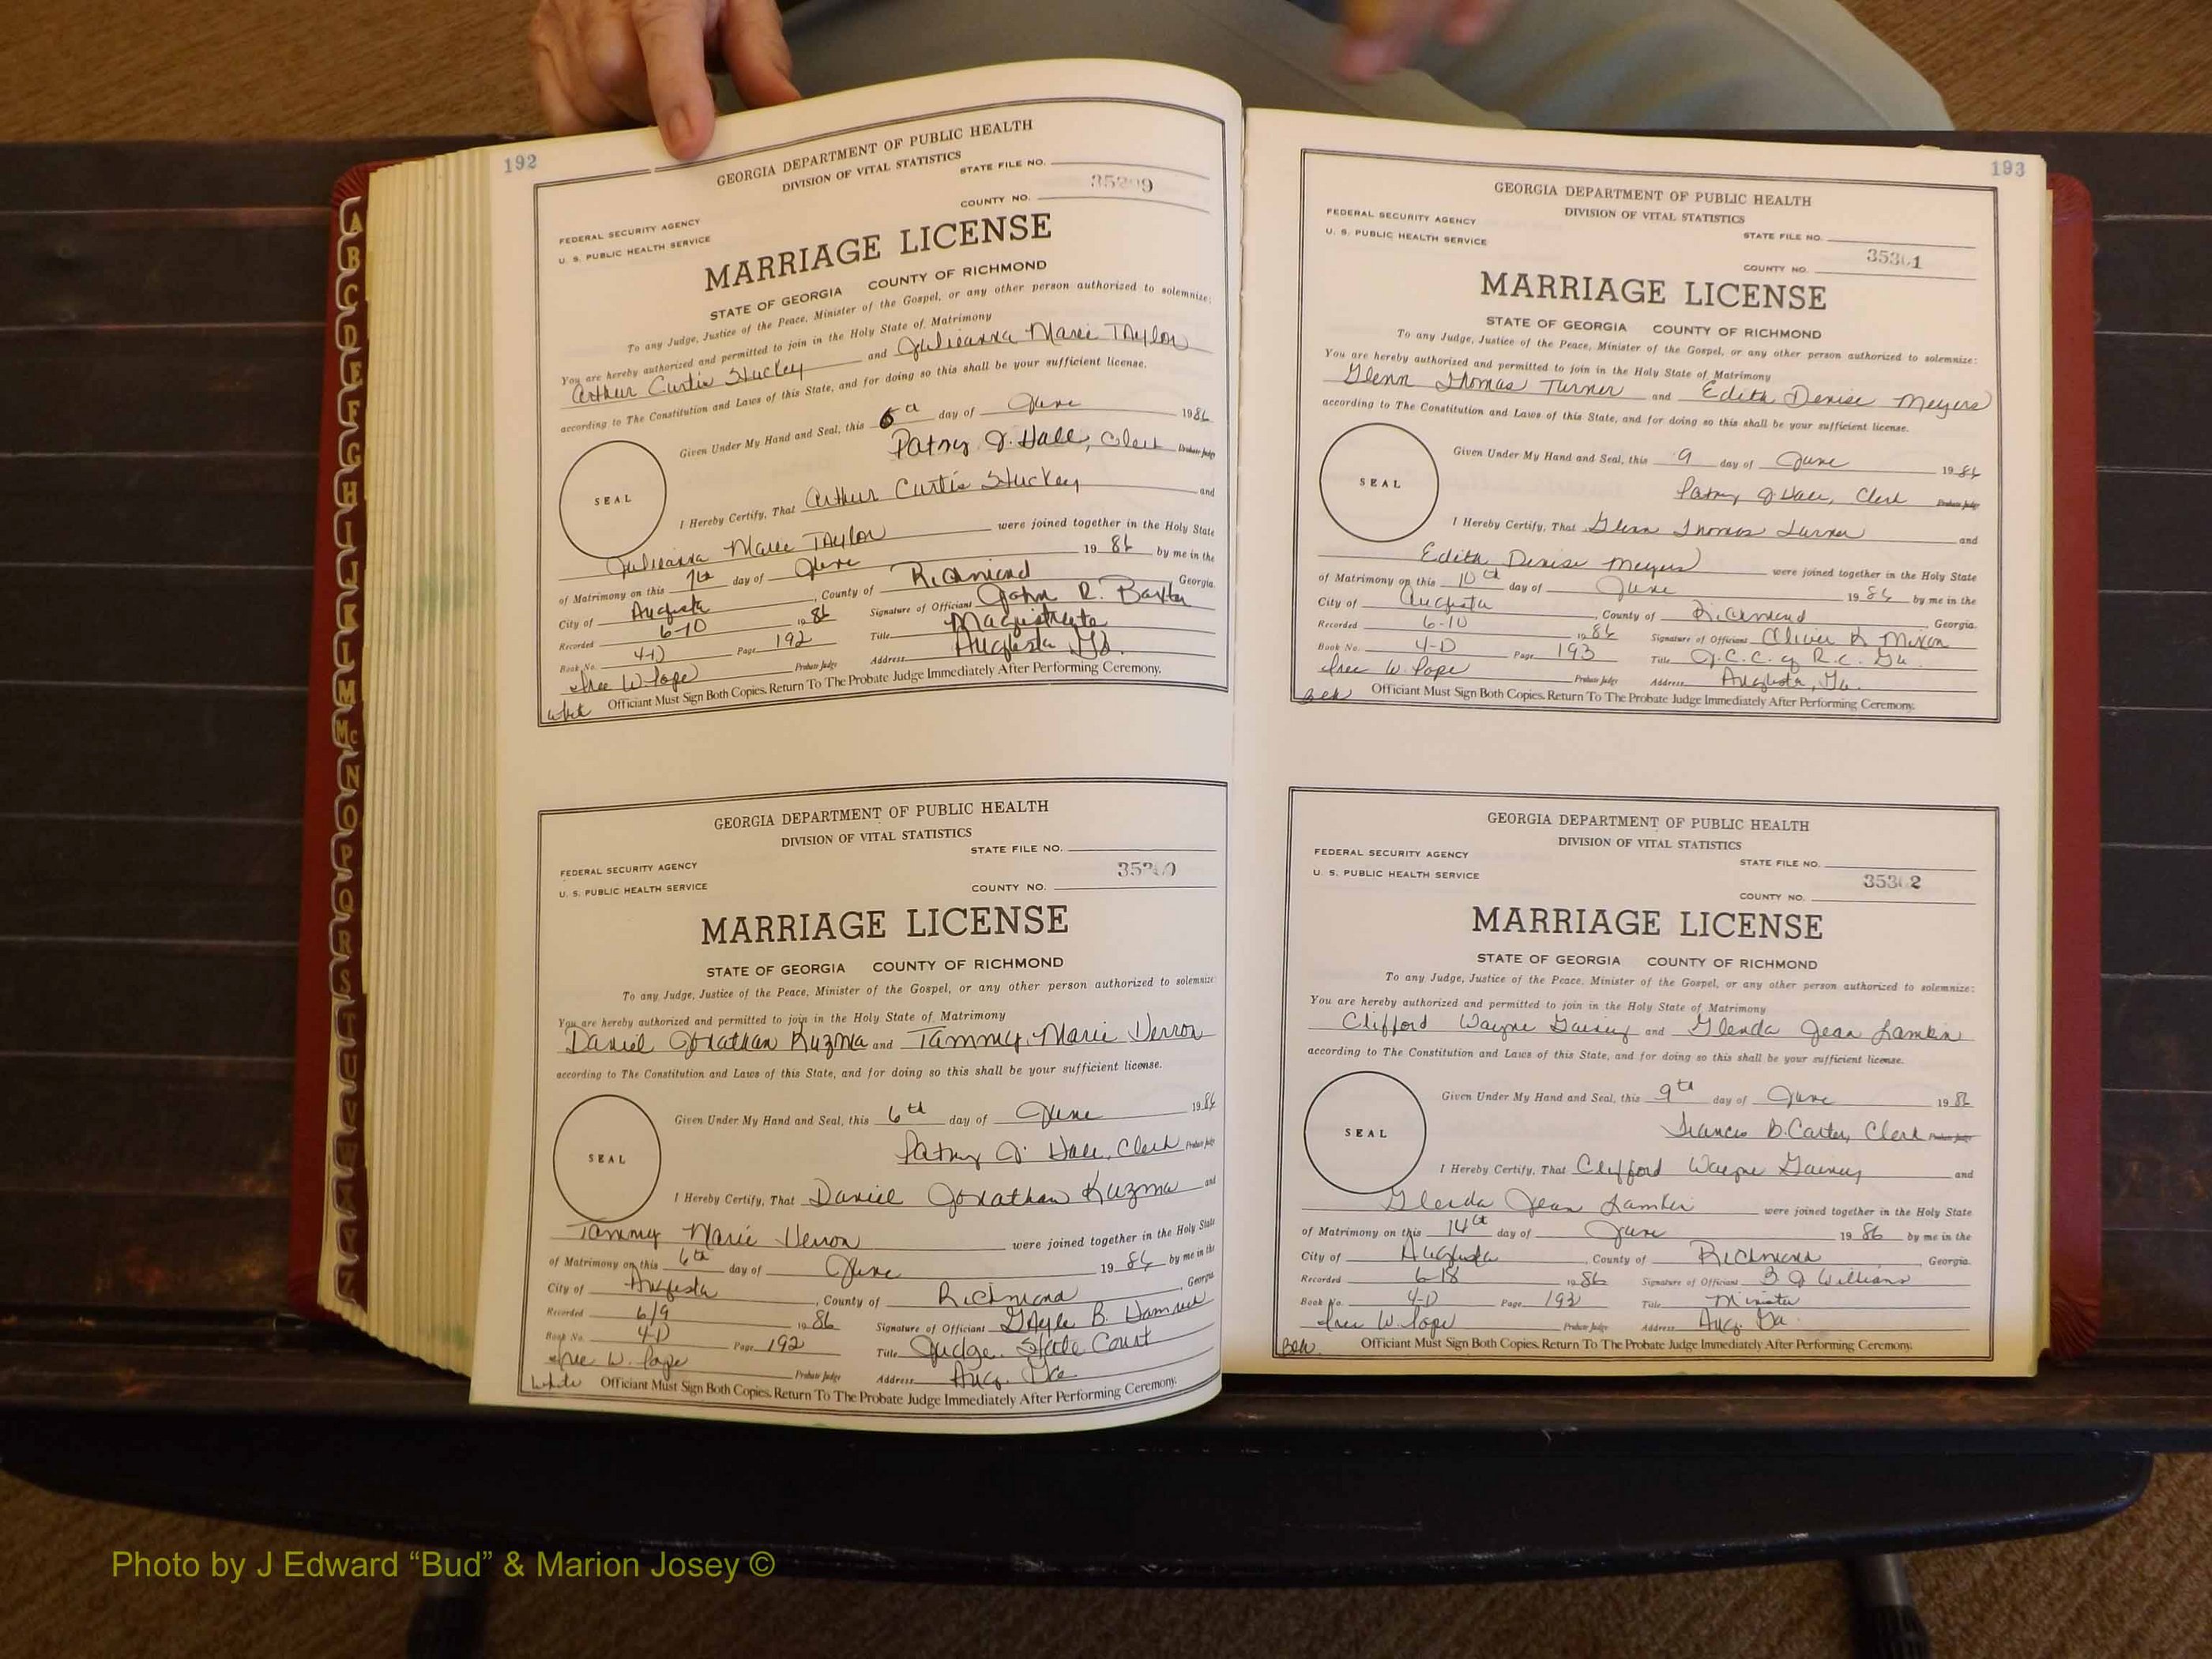 192
GEORGIA DEPARTMENT OF PUBLIC HEALTH
DIVISION OF VITAL STATISTICS
STATE FILE NO.
FEDERAL SECURITY AGENCY
U. S. PUBLIC HEALTH SERVICE
COUNTY NO.
MARRIAGE LICENSE
STATE OF GEORGIA COUNTY OF RICHMOND
To any Judge, Justice of the Peace, Minister of the Gospel, or any other person authorized to solemnize:
You are hereby authorized and permitted to join in the Holy State of Matrimony
Arthur Curtis Stuckey and Julieanna Marie Taylor
according to The Constitution and Laws of this State, and for doing so this shall be your sufficient license.
Given Under My Hand and Seal, this day of June 1986
Hall, Clerk Probate Judge
SEAL
I Hereby Certify, That Arthur Curtis Stuckey and
Julieanna Marie Taylor were joined together in the Holy State
of Matrimony on this 7th day of June 1986 by me in the
City of Augusta, County of Richmond Georgia.
Recorded 6-10 1986 Signature of Officiant John R. Baxter
Book No. 4-D Page 192 Title Magistrate
W. Pope Probate Judge Address Augusta Ga.
white Officiant Must Sign Both Copies. Return To The Probate Judge Immediately After Performing Ceremony.
GEORGIA DEPARTMENT OF PUBLIC HEALTH
DIVISION OF VITAL STATISTICS
STATE FILE NO.
FEDERAL SECURITY AGENCY
U. S. PUBLIC HEALTH SERVICE
COUNTY NO.
MARRIAGE LICENSE
STATE OF GEORGIA COUNTY OF RICHMOND
To any Judge, Justice of the Peace, Minister of the Gospel, or any other person authorized to solemnize:
You are hereby authorized and permitted to join in the Holy State of Matrimony
Daniel Jonathan Kuzma and Tammy Marie Verron
according to The Constitution and Laws of this State, and for doing so this shall be your sufficient license.
Given Under My Hand and Seal, this 6th day of June 1986
Hall, Clerk Probate Judge
SEAL
I Hereby Certify, That Daniel Jonathan Kuzma and
Tammy Marie Verron were joined together in the Holy State
of Matrimony on this 6th day of June 1986 by me in the
City of Augusta, County of Richmond, Georgia
Recorded 6/9 1986 Signature of Officiant Gayle B. Hamrick
Book No. 4-D Page 192 Title Judge State Court
W. Pope Probate Judge Address Aug. Ga
white Officiant Must Sign Both Copies. Return To The Probate Judge Immediately After Performing Ceremony.
193
GEORGIA DEPARTMENT OF PUBLIC HEALTH
DIVISION OF VITAL STATISTICS
FEDERAL SECURITY AGENCY
STATE FILE NO.
U. S. PUBLIC HEALTH SERVICE
35301
COUNTY NO.
MARRIAGE LICENSE
STATE OF GEORGIA COUNTY OF RICHMOND
To any Judge, Justice of the Peace, Minister of the Gospel, or any other person authorized to solemnize:
You are hereby authorized and permitted to join in the Holy State of Matrimony
Glenn Thomas Turner and Edith Denise Meyers
according to The Constitution and Laws of this State, and for doing so this shall be your sufficient license.
Given Under My Hand and Seal, this 9 day of June 1986
Hall, Clerk Probate Judge
SEAL
I Hereby Certify, That Glenn Thomas Turner and
Edith Denise Meyers were joined together in the Holy State
of Matrimony on this 10th day of June 1986 by me in the
City of Augusta, County of Richmond, Georgia.
Recorded 6-10 1986 Signature of Officiant Oliver K Mixon
Book No. 4-D Page 193 Title J.C.C. of R.C. Ga.
W. Pope Probate Judge Address Augusta, Ga.
Officiant Must Sign Both Copies. Return To The Probate Judge Immediately After Performing Ceremony.
GEORGIA DEPARTMENT OF PUBLIC HEALTH
DIVISION OF VITAL STATISTICS
FEDERAL SECURITY AGENCY
STATE FILE NO.
U. S. PUBLIC HEALTH SERVICE
35302
COUNTY NO.
MARRIAGE LICENSE
STATE OF GEORGIA COUNTY OF RICHMOND
To any Judge, Justice of the Peace, Minister of the Gospel, or any other person authorized to solemnize:
You are hereby authorized and permitted to join in the Holy State of Matrimony
Clifford Wayne Gainey and Glenda Jean Lamkin
according to The Constitution and Laws of this State, and for doing so this shall be your sufficient license.
Given Under My Hand and Seal, this 9th day of June 1986
Frances B. Carter, Clerk Probate Judge
SEAL
I Hereby Certify, That Clifford Wayne Gainey and
Glenda Jean Lamkin were joined together in the Holy State
of Matrimony on this 14th day of June 1986 by me in the
City of Augusta, County of Richmond, Georgia.
Recorded 6-18 1986 Signature of Officiant B J Williams
Book No. 4-D Page 193 Title Minister
W. Pope Probate Judge Address Aug. Ga.
Officiant Must Sign Both Copies. Return To The Probate Judge Immediately After Performing Ceremony.
Photo by J Edward “Bud” & Marion Josey ©